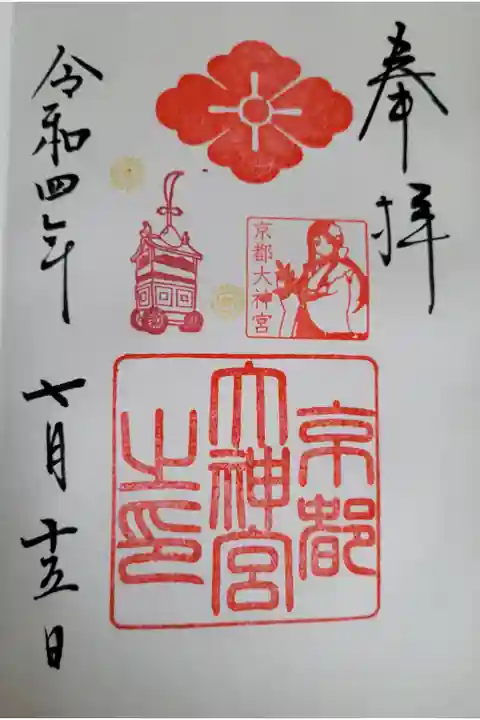 奉拝
京都大神宮
京都
大神宮
之印
令和四年 七月十五日